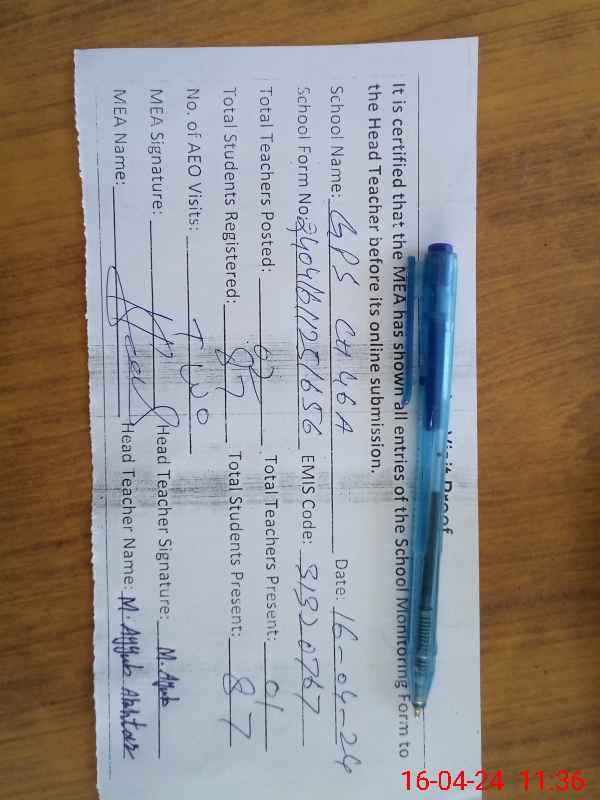 Visit Proof
It is certified that the MEA has shown all entries of the School Monitoring Form to
the Head Teacher before its online submission.
School Name: GPS CH 46 A Date: 16-04-24
School Form No: 24041611251656 EMIS Code: 31320767
Total Teachers Posted: 02 Total Teachers Present: 01
Total Students Registered: 87 Total Students Present: 87
No. of AEO Visits: Two
MEA Signature: Head Teacher Signature: M. Ayub
MEA Name: Head Teacher Name: M. Ayyub Akhtar
16-04-24 11:36